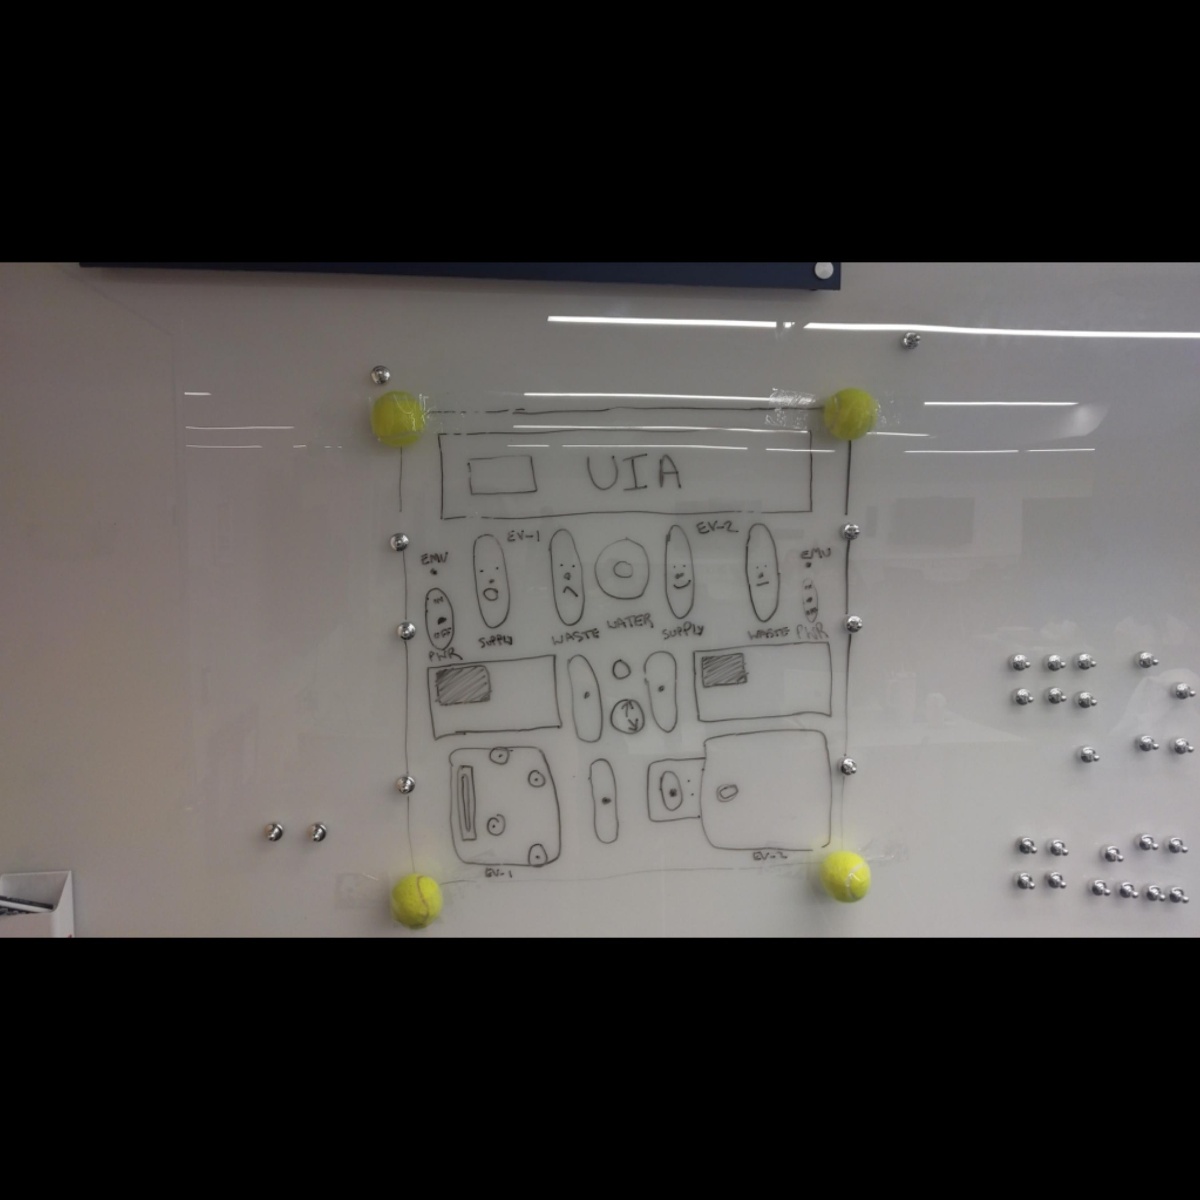 UIA
EV-1
EV-2
EMU
EMU
OFF
SUPPLY
WASTE
WATER
SUPPLY
WASTE
PWR
PWR
EV-1
EV-2